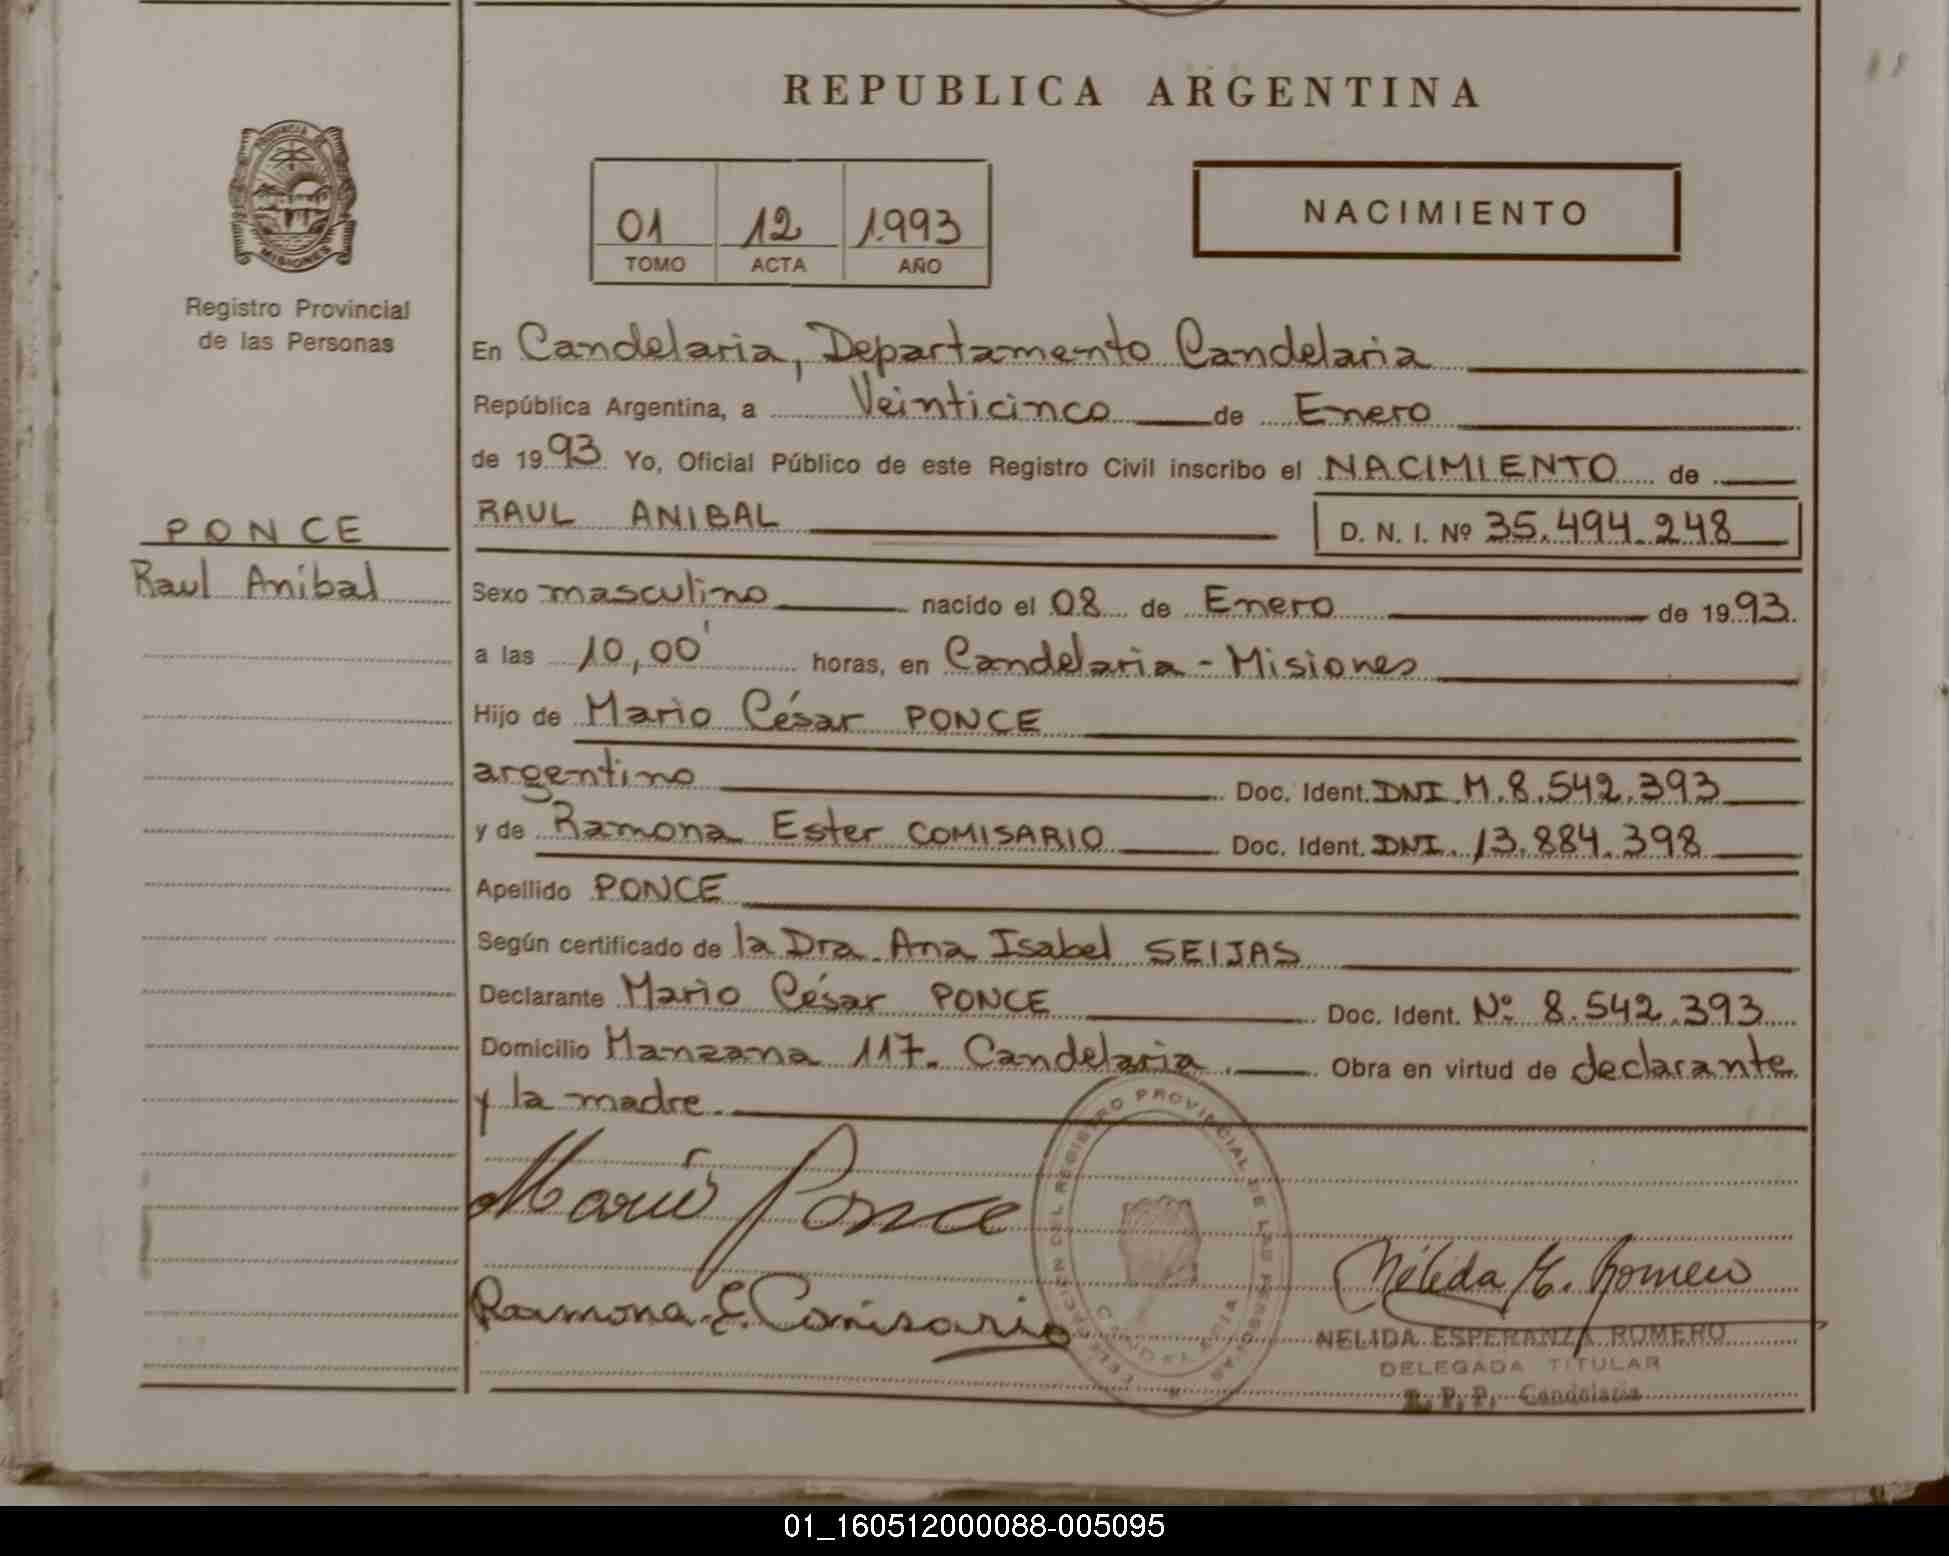 REPUBLICA ARGENTINA
PROVINCIA DE
MISIONES
Registro Provincial
de las Personas
01 12 1.993
TOMO ACTA AÑO
NACIMIENTO
En Candelaria, Departamento Candelaria
República Argentina, a Veinticinco de Enero
de 1993 Yo, Oficial Público de este Registro Civil inscribo el NACIMIENTO de
PONCE
Raul Anibal
RAUL ANIBAL D. N. I. Nº 35.494.248
Sexo masculino nacido el 08 de Enero de 1993.
a las 10,00' horas, en Candelaria - Misiones
Hijo de Mario César PONCE
argentino Doc. Ident. DNI M. 8.542.393
y de Ramona Ester COMISARIO Doc. Ident. DNI. 13.884.398
Apellido PONCE
Según certificado de la Dra. Ana Isabel SEIJAS
Declarante Mario César PONCE Doc. Ident. Nº 8.542.393
Domicilio Manzana 117. Candelaria. Obra en virtud de declarante
y la madre.
Mario Ponce
Ramona. E. Comisario
REGISTRO PROVINCIAL DE LAS PERSONAS
Nélida E. Romero
NELIDA ESPERANZA ROMERO
DELEGADA TITULAR
R. P. P. Candelaria
01_160512000088-005095